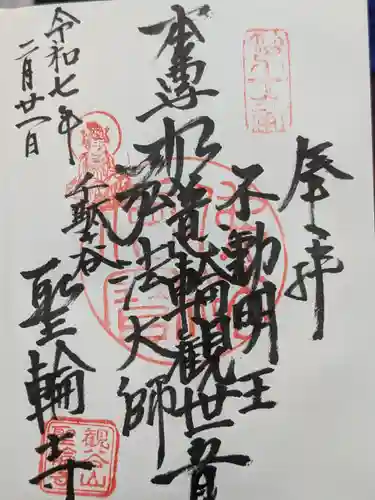 奉拝
不動明王
本尊 如意輪観世音
弘法大師
千駄ヶ谷
聖輪寺
令和七年
二月廿一日
観谷山
聖輪寺